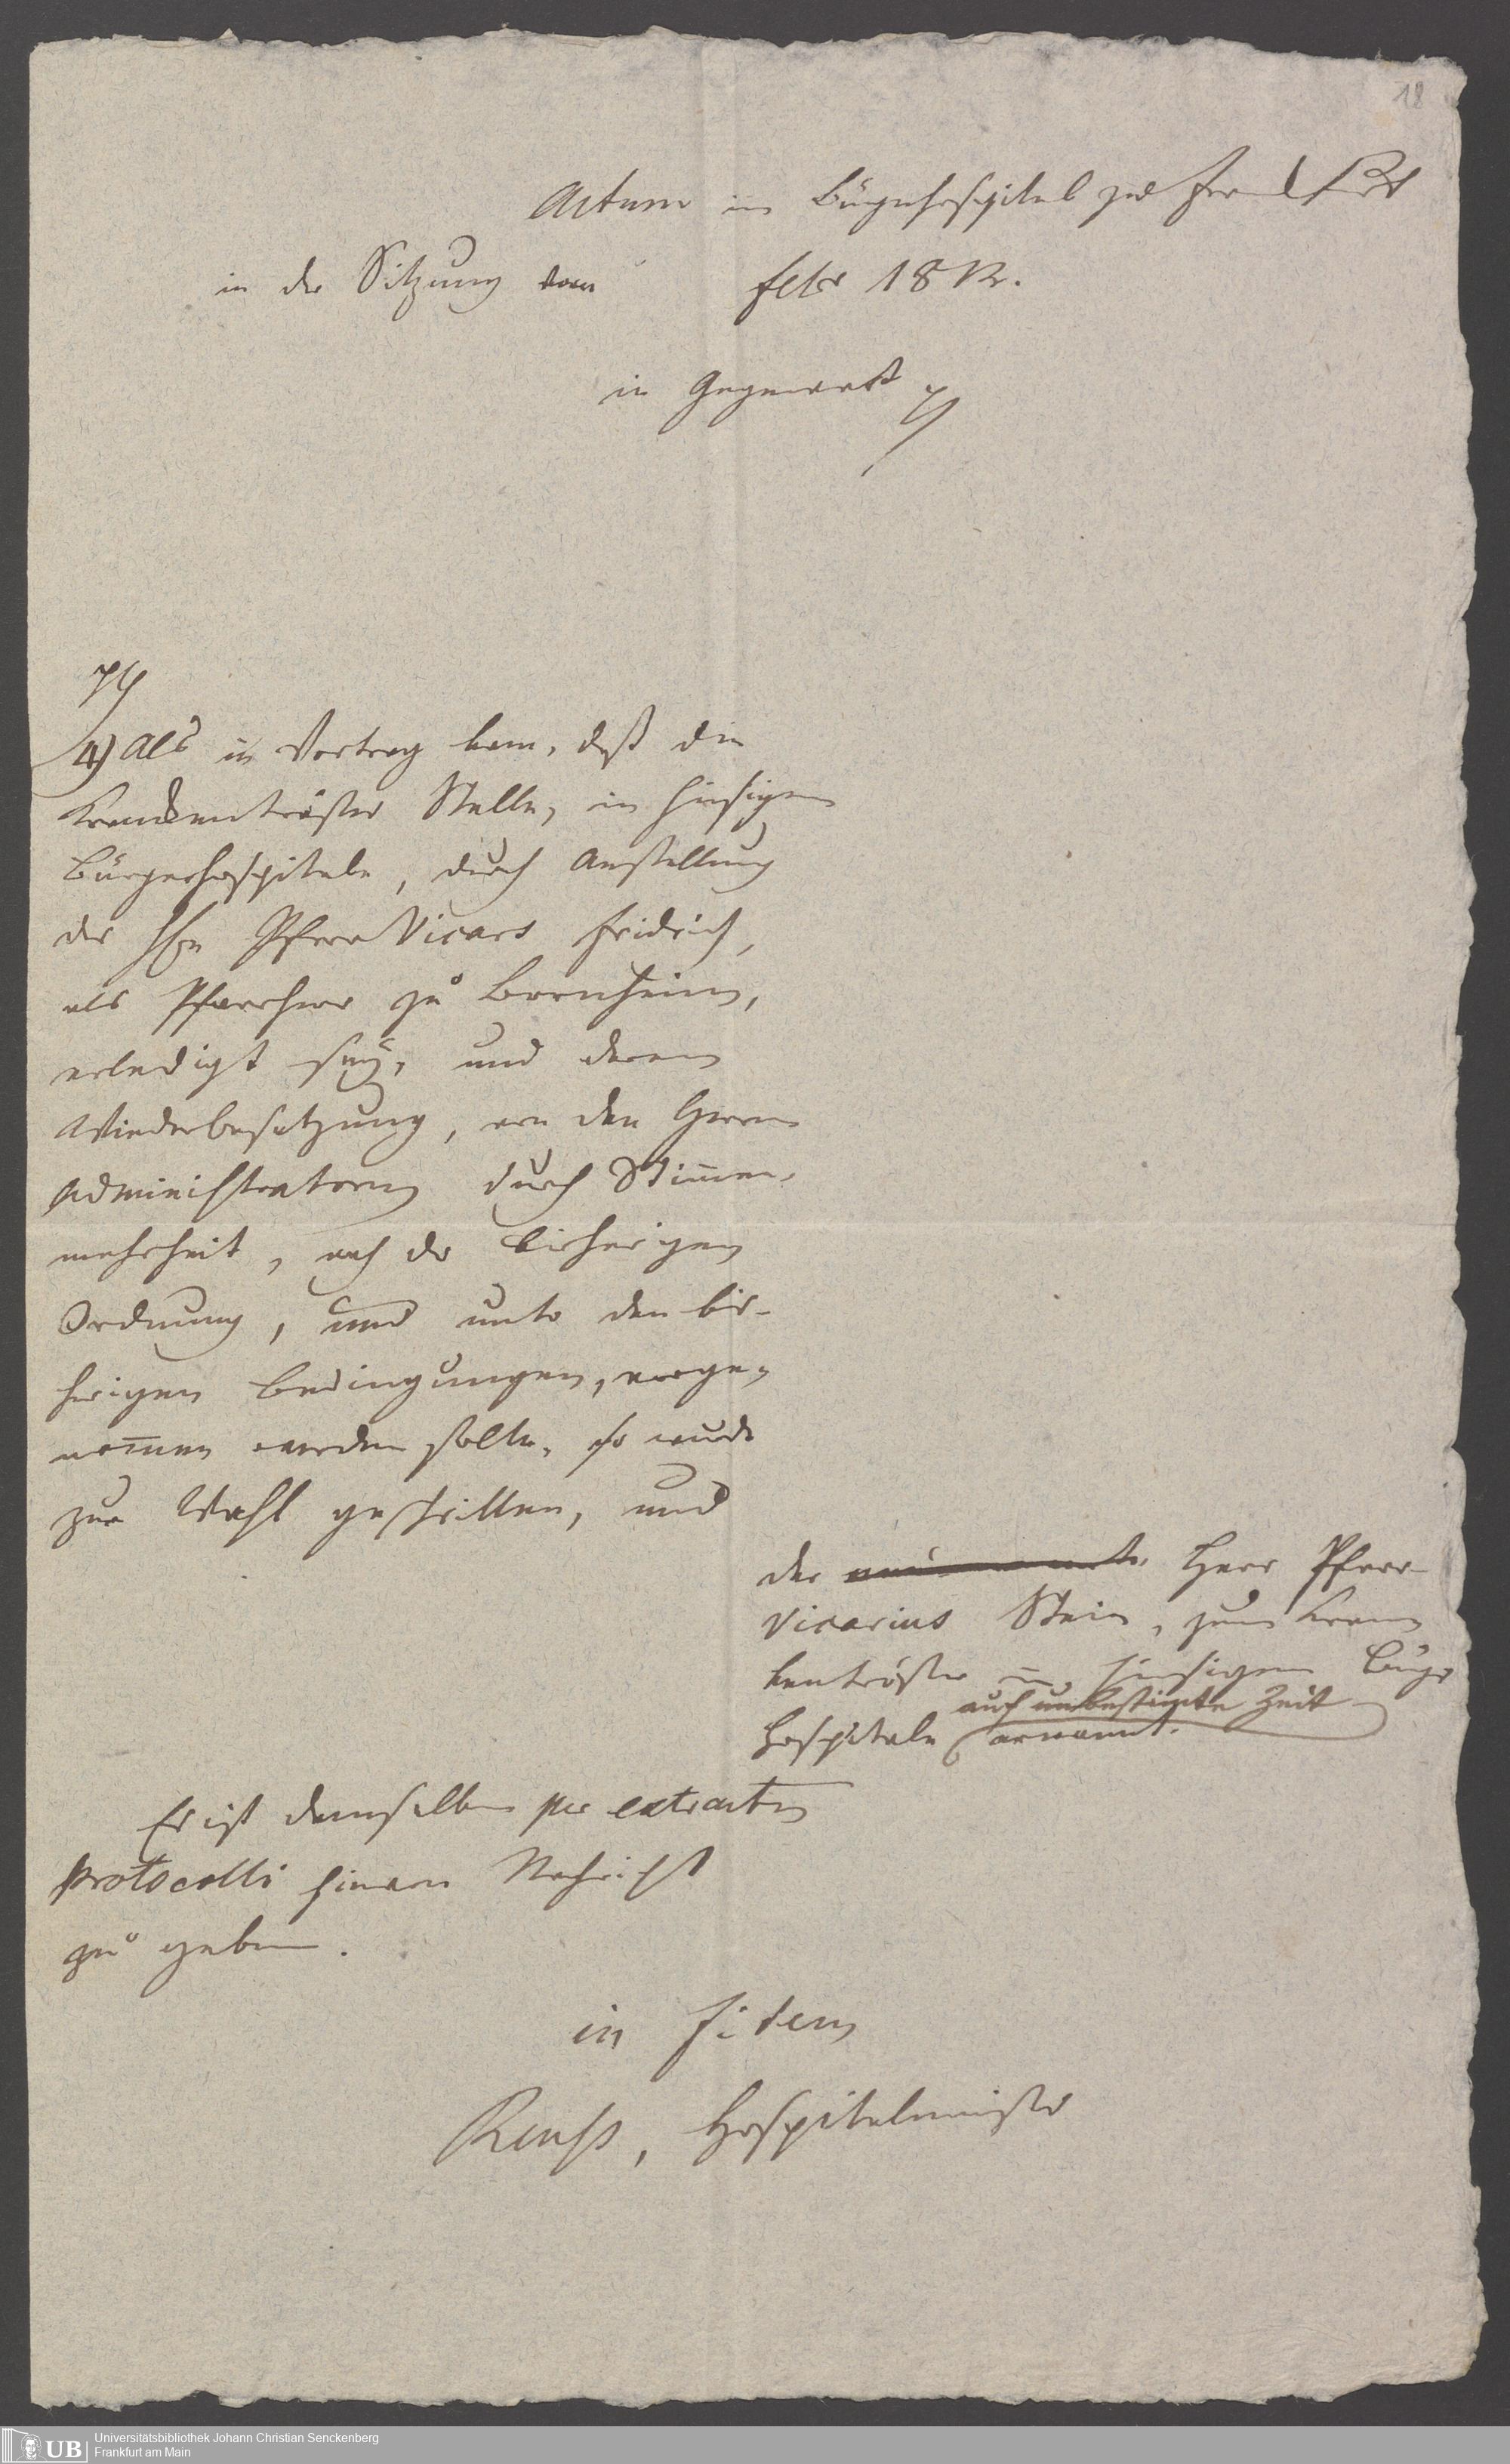 18
Actum im Bürgerhospital zu Frankfurt
in der Sitzung vom Febr 1812.
in Gegenwart
4) Als in Vortrag kam, daß die
Krankentröster Stelle, im hiesigen
Bürgerhospitale, durch Anstellung
des Hrn Pfarr Vicars Fridrich,
als Pfarrherr zu Bornheim,
erledigt sey, und deren
Wiederbesetzung, von den Herrn
Administratoren durch Stimmen-
mehrheit, nach der bisherigen
Ordnung, und unter den bis-
herigen Bedingungen, vorge-
nommen werden sollte, so wurde
zur Wahl geschritten, und
der Herr Pfarr-
Vicarius Stein, zum Kran
kentröster im hiesigen Bürger
auf unbestimte Zeit
Hospitale ernannt.
Es ist demselben per extractum
protocolli hievon Nachricht
zu geben.
in fidem
Reuss, Hospitalmeister
UB Universitätsbibliothek Johann Christian Senckenberg
Frankfurt am Main